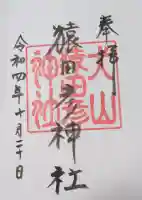 奉拝
犬山
猿田彦
神社
猿田彦神社
令和四年十月二十日